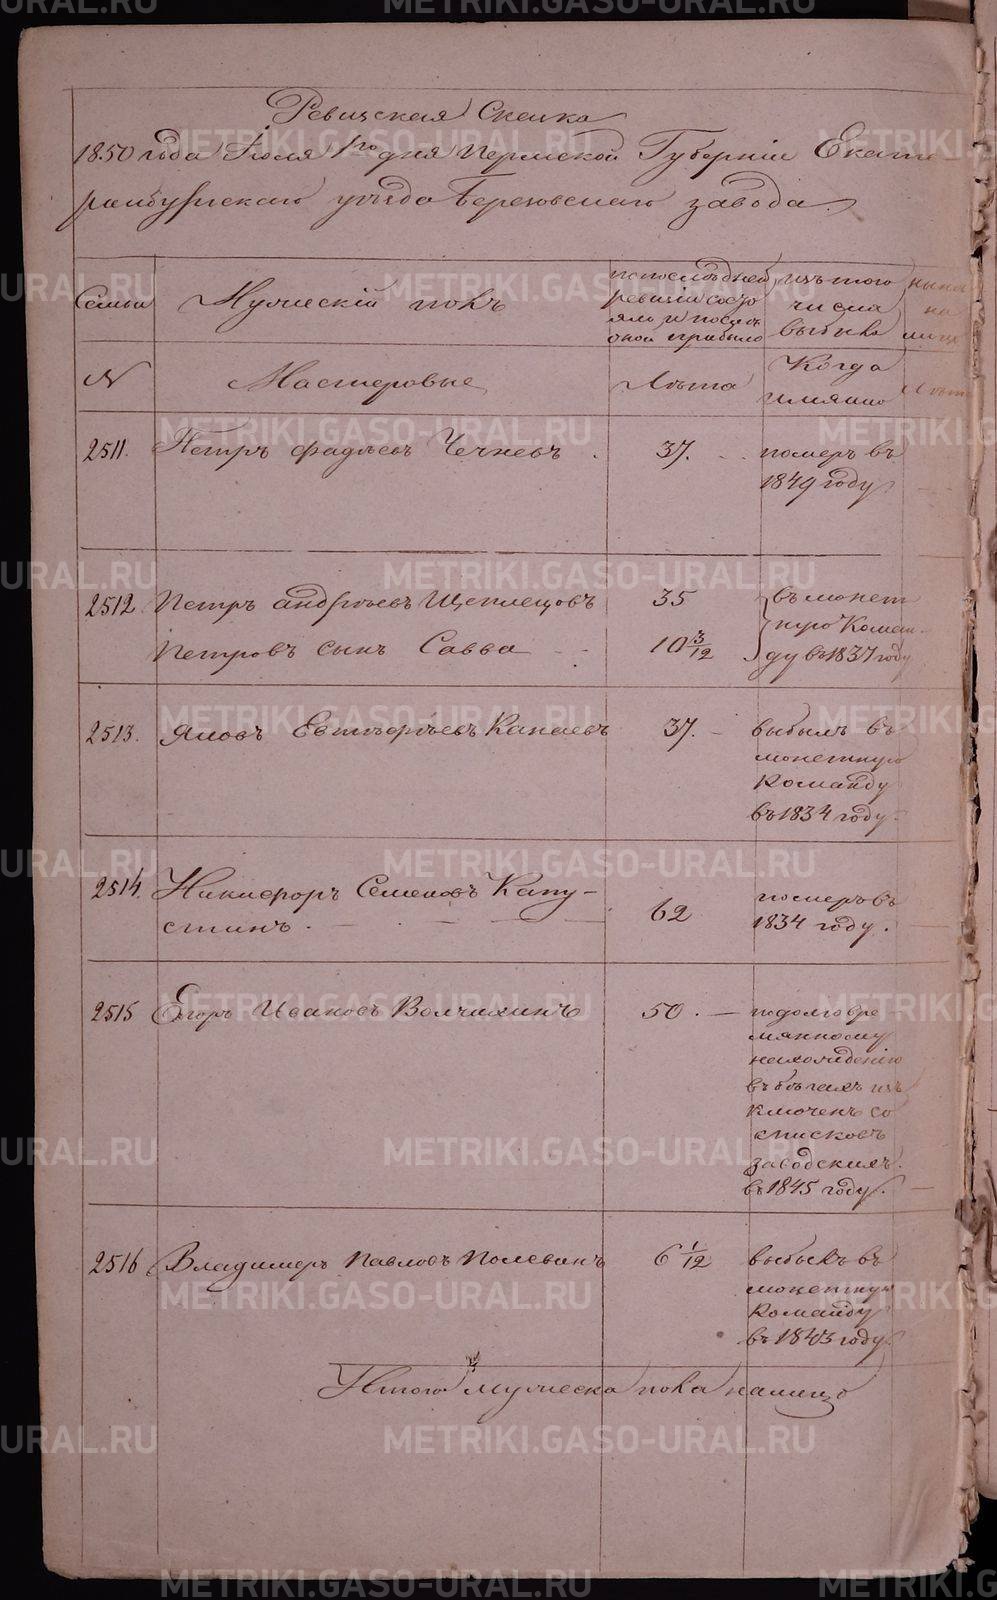 Ревизская Сказка
1850 года Июля 1го дня Пермской Губернiи Екате-
ринбургскаго уѣзда Березовскаго завода.
Семьи
Мужескiй полъ
по последней
ревизiи состо
яло и после
оной прибыло
изъ того
числа
выбыло
ныне
на
лице
№
Мастеровые
Лѣта
Когда
имянно
Лѣта
2511. Петръ Фадѣевъ Чечневъ . 37. - . померъ въ
1849 году
2512 Петръ Андрѣевъ Щеплецовъ 35 въ монет
ную Коман-
Петровъ сынъ Савва - - 10 3/12 ду въ 1837 году
2513. Яковъ Евстигнѣевъ Канаевъ 37. - выбылъ въ
монетную
Команду
въ 1834 году.
2514. Никифоръ Семеновъ Капу-
стинъ. - - - 62 померъ въ
1834 году.
2515 Егоръ Ивановъ Волчихинъ 50. - по долговре
мянному
нахожденiю
въ бѣгахъ из
ключенъ со
списковъ
заводскихъ
въ 1845 году.
2516 Владимеръ Павловъ Полевинъ 6 1/12 выбылъ въ
монетную
Команду
въ 1843 году
Итого мужеска пола налицо
METRIKI.GASO-URAL.RU